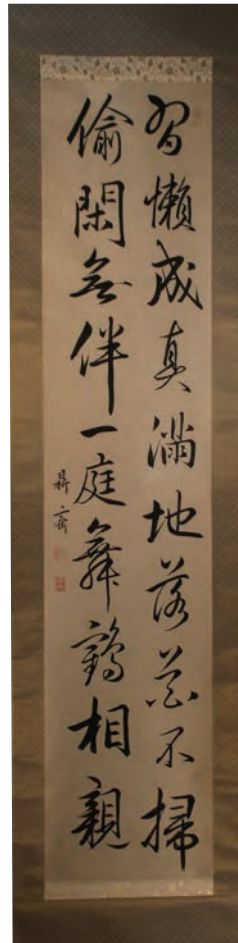 習懶成真満地落花不掃
偷閑無伴一庭舞鶴相親
鼎斎